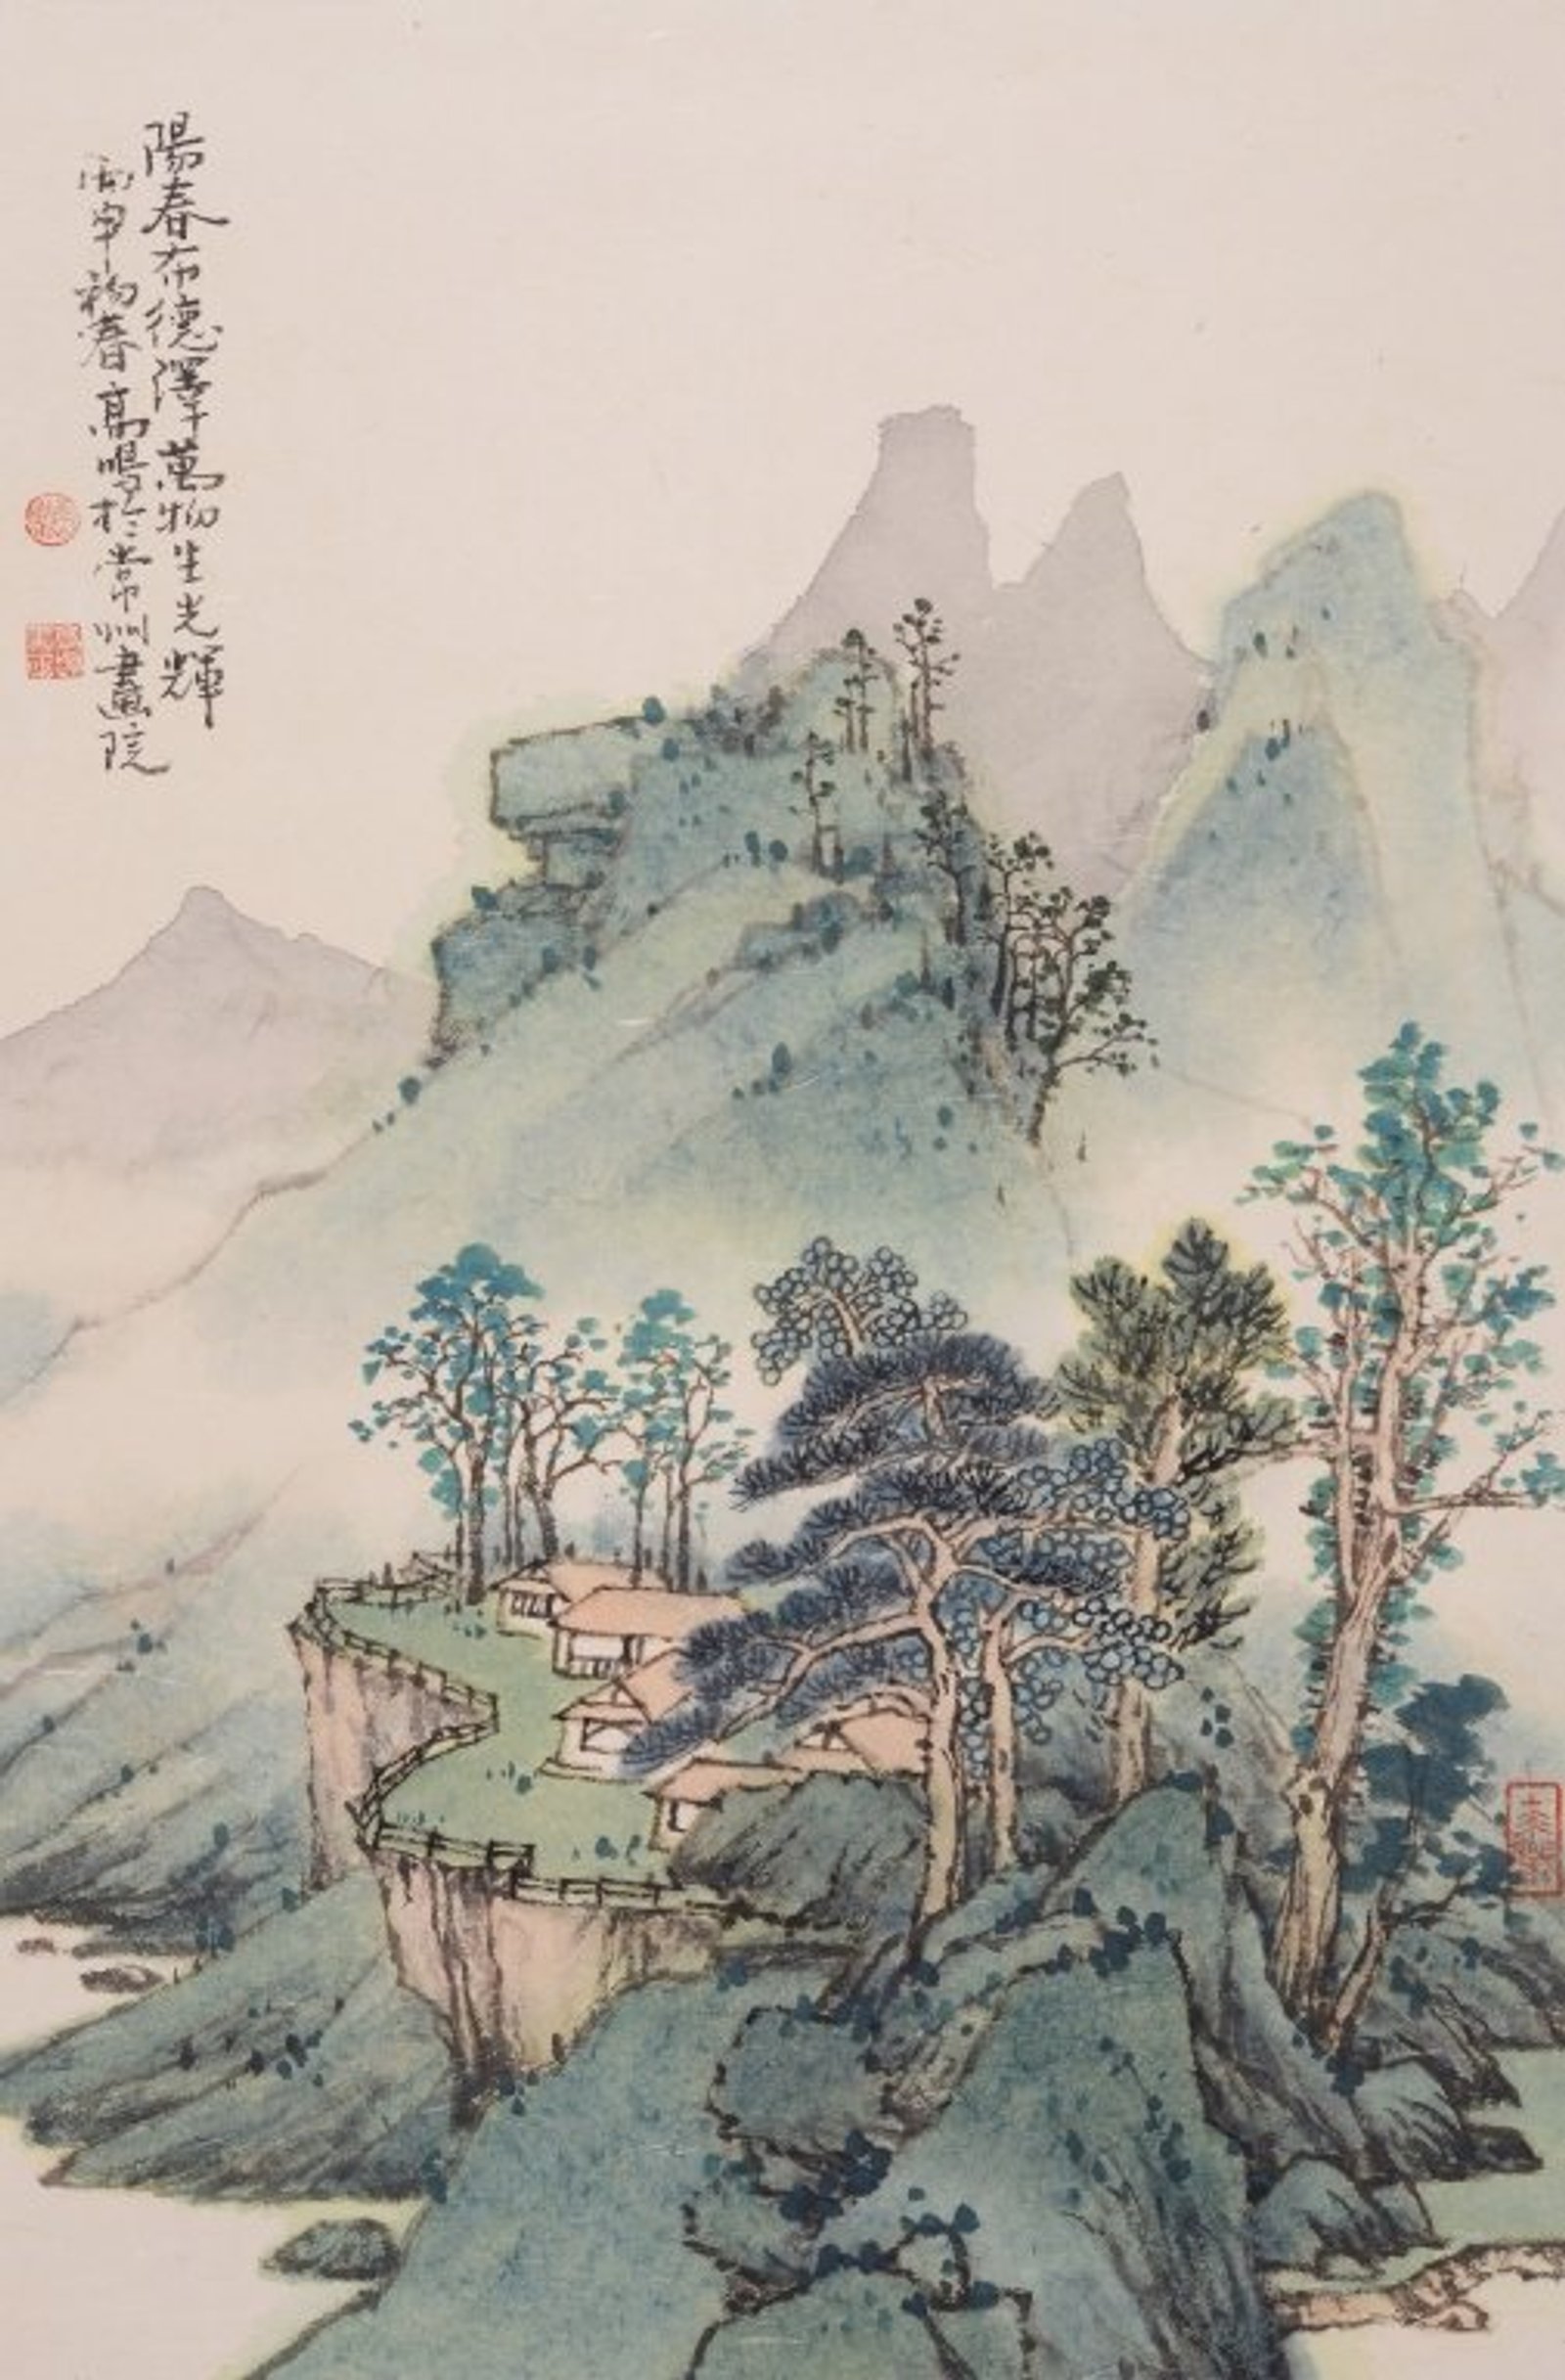 陽春布德澤萬物生光輝
丙申初春高鳴於常州畫院